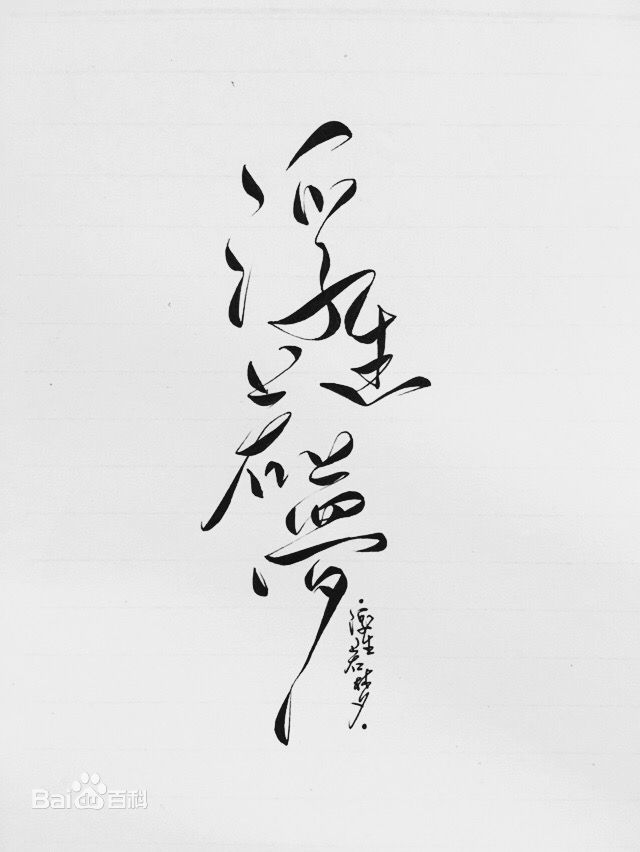 浮生若夢
浮生若梦
Baidu百科